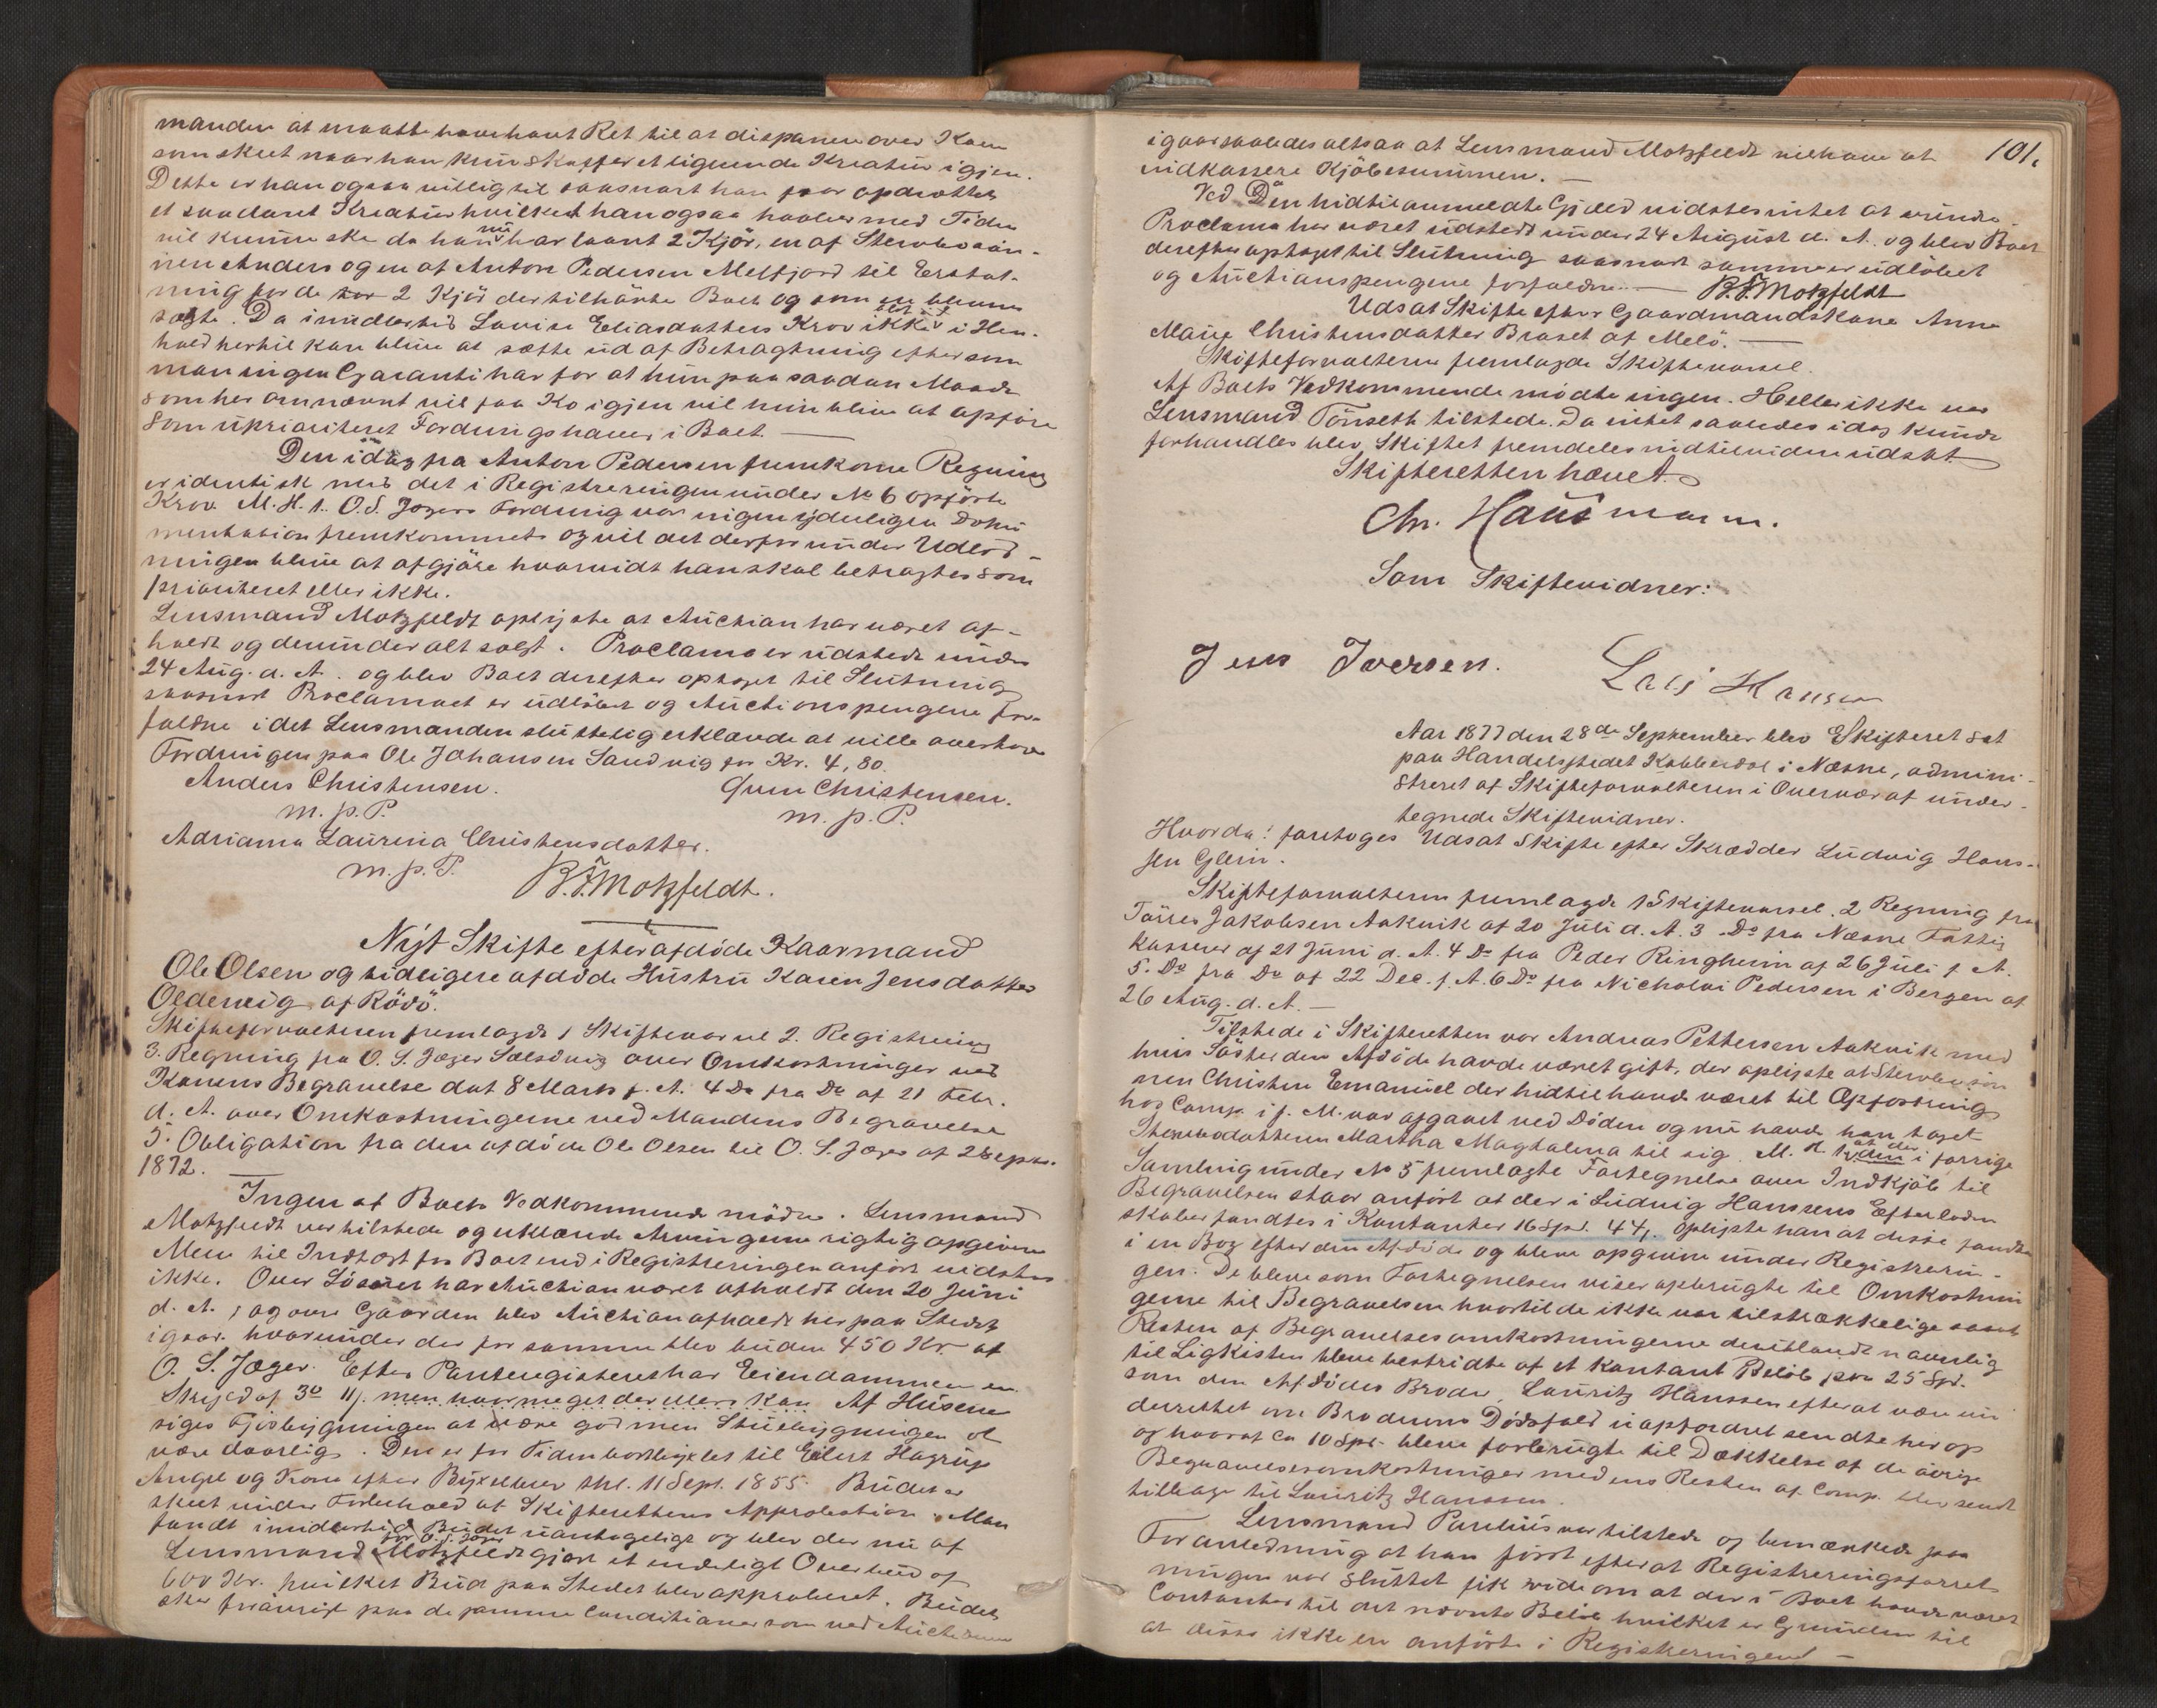 manden at maatte have havt Ret til at disponere over Koen
som skeet naar han kun skaffer et lignende Kreatur igjen.
Dette er han ogsaa villig til saasnart han faar opdrættet
et saadant Kreatur hvilket han ogsaa haaber med Tiden
vil kunne ske da han nu har laant 2 Kjör, en af Stervbosön-
nen Anders og en af Anton Pedersen Melfjord til Erstat-
ning for de 2 Kjör der tilhörte Boet og som
solgte. Da imidlertid Lovise Eliasdatters Krav ikke i Hen-
hold hertil kan blive at sætte ud af Betragtning eftersom
man ingen Garanti har for at hun paa saadan Maade
som her omnævnt vil faa Ko igjen vil hun blive at opföre
som uprioriteret Fordringshaver i Boet. —
Den idag fra Anton Pedersen fremkomne Regning
er identisk med det i Registreringen under No 6 opförte
Krav. M. H. t. O. S. Jægers Fordring var ingen yderligere Doku
mentation fremkommet og vil det derfor under Udlod-
ningen blive at afgjöre hvorvidt han skal betragtes som
prioriteret eller ikke.
Lensmand Motzfeldt oplyste at Auction har været af-
holdt og derunder alt solgt. Proclama er udstedt under
24 Aug. d. A. og blev Boet derefter optaget til Slutning
saasnart Proclamaet er udlöbet og Auctionspengene for-
faldne idet Lensmanden sluttelig erklærede at ville overtage
Fordringen paa Ole Johansen Sandvig for Kr. 4,80.
Anders Christensen. Christensen.
m. p. P. m. p. P.
Adriana Laurina Christensdatter.
m. p. P. B. F. Motzfeldt.
Nyt Skifte efter afdöde Kaarmand
Ole Olsen og tidligere afdöde Hustru Karen Jensdatter
Oldervig af Rödö.
Skifteforvalteren fremlagde 1 Skiftevarsel 2. Registrering
3. Regning fra O. S. Jæger Selsövig over Omkostninger ved
Konens Begravelse dat 8 Marts f. A. 4 Do fra Do af 21 Febr.
d. A. over Omkostningerne ved Mandens Begravelse
5. Obligation fra den afdöde Ole Olsen til O. S. Jæger af 2 Septr.
1872.
Ingen af Boets Vedkommende mödte. Lensmand
Motzfeldt var tilstede og erklærede Arvingerne rigtig opgivne
Mere til Indtægt for Boet end i Registreringen anfört vidstes
ikke. Over Lösöret har Auction været afholdt den 20 Juni
d. A., og over Gaarden blev Auction afholdt her paa Stedet
igaar. hvorunder der for samme blev buden 450 Kr. af
O. S. Jæger. Efter Panteregisteret har Eiendommen en
Skyld af 3 11 men hvor meget der ellers kan Af Husene
siges Fjösbygningen at være god men Stuebygningen at
være daarlig. Den er for Tiden bortbyxlet til Eilert Hagrup
Angel og Kone efter Byxelbrev thl. 11 Sept. 1855. Budet er
skeet under Forbehold af Skifterettens Approbation. Man
fandt imidlertid Budet uantageligt og blev der nu af
Lensmand Motzfeldt for O. S. Jæger gjort et endeligt Overbud af
600 Kr. hvilket Bud paa Stedet blev approberet. Budet
sker forövrigt paa de samme Conditioner som ved Auctionen
101.
igaar saaledes altsaa at Lensmand Motzfeldt vil have at
indkassere Kjöbesummen. —
Ved Den hidtil anmeldte Gjæld vidstes intet at erindre.
Proclama har været udstedt under 24 August d. A. og blev Boet
derefter optaget til Slutning saasnart samme er udlöbet
og Auctionspengene forfaldne. — B. F. Motzfeldt
Udsat Skifte efter Gaardmandskone Anne
Marie Christensdatter Braset af Melö. —
Skifteforvalteren fremlagde Skiftevarsel.
Af Boets Vedkommende mödte ingen. Heller ikke var
Lensmand Tönseth tilstede. Da intet saaledes idag kunde
forhandles blev Skiftet fremdeles indtil viden udsat.
Skifteretten hævet.
Chr. Hausmann.
Som Skiftevidner:
Jens Iversen. Lars Hansen
Aar 1877 den 28de September blev Skifteret sat
paa Handelsstedet Kobberdal i Næsne, admini-
streret af Skifteforvalteren i Overvær af under-
tegnede Skiftevidner.
Hvorda: foretoges Udsat Skifte efter Skrædder Ludvig Hans-
sen Glein.
Skifteforvalteren fremlagde 1 Skiftevarsel. 2 Regning fra
Törres Jakobsen Aakvik af 20 Juli d. A. 3. Do fra Næsne Fattig
kasserer af 21 Juni d. A. 4 Do fra Peder Ringheim af 26 Juli f. A.
5. Do fra Do af 22 Dec. f. A. 6 Do fra Nicholai Pedersen i Bergen af
26 Aug. d. A. —
Tilstede i Skifteretten var Andreas Pettersen Aakvik med
hvis Söster den Afdöde havde været gift, der oplyste at Stervbosön
nen Christen Emanuel der hidtil havde været til Opfostring
hos Comp. i f. M. var afgaaet ved Döden og nu havde han taget
Stervbodatteren Martha Magdalena til sig. M. H. t. at der i forrige
Samling under No 5 fremlagte Fortegnelse over Indkjöb til
Begravelsen staar anfört at der i Ludvig Hanssens Efterladen
skaber fandtes i Kontanter 16 Spd. 44 oplyste han at disse fandtes
i en Bog efter den Afdöde og bleve opgivne under Registrerin-
gen. De bleve som Fortegnelsen viser opbrugte til Omkostnin
gerne til Begravelsen hvortil de ikke var tilstrækkelige samt
Resten af Begravelsesomkostningerne deriblandt navnlig
til Ligkisten bleve bestridte af et kontant Belöb paa 25 Spd.
som den Afdödes Broder, Lauritz Hanssen efter at være un
derrettet om Broderens Dödsfald uopfordret sendte herop
og hvoraf ca 10 Spd. bleve forbrugte til Dækkelse af de övrige
Begravelsesomkostninger medens Resten af Comp. blev sendt
tilbage til Lauritz Hanssen.
Lensmand Paulius var tilstede og bemærkede paa
Foranledning at han först efterat Registreringsforret
ningen var sluttet fik vide om at der i Boet havde været
Contanter til det nævnte Belöb hvilket er Grunden til
at disse ikke ere anförte i Registreringen —